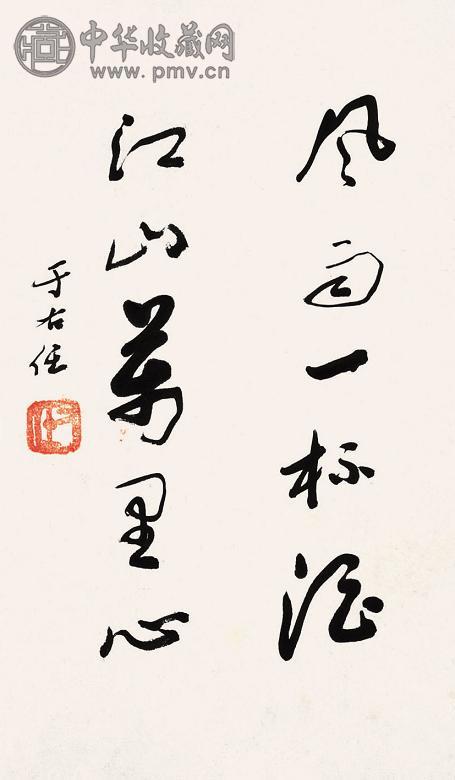 中华收藏网
www.pmv.cn
风雨一杯酒
江山萬里心
于右任